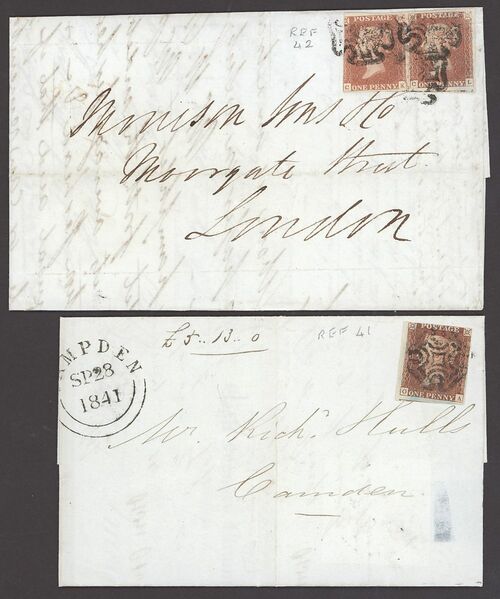 REF
42
POSTAGE POSTAGE
ONE PENNY ONE PENNY
C K C L
Morrison Sons & Co
Moorgate Street
London
AMPDEN
SP 28
1841
£5..13..0
REF 41
POSTAGE
ONE PENNY
A
Mr. Richd. Hulls
Camden.